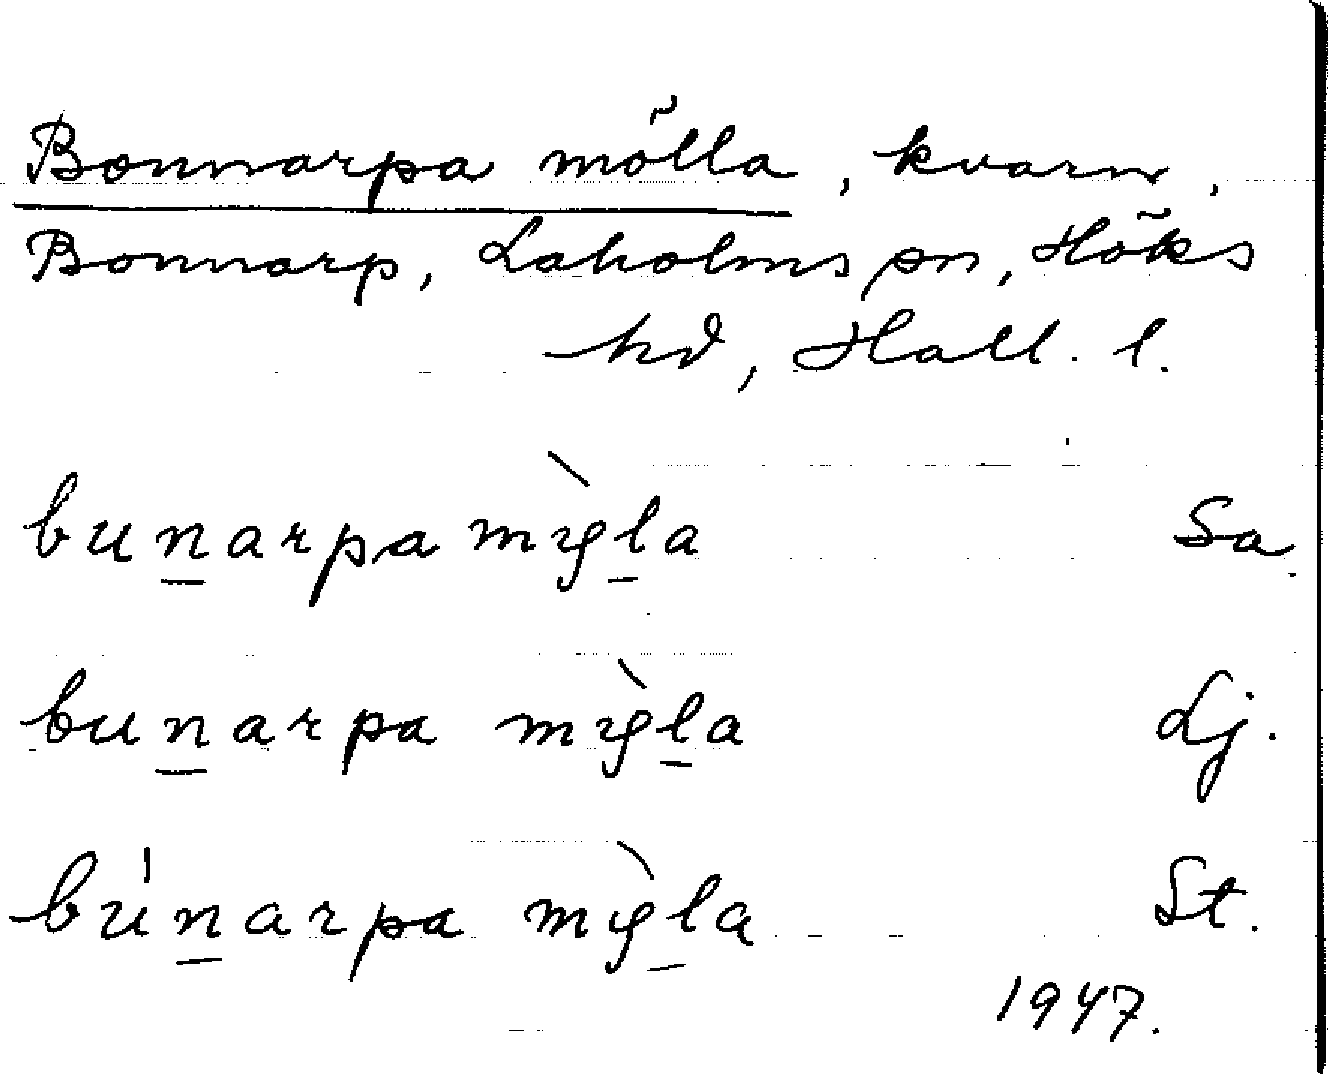 Bonnarpa mölla, kvarn,
Bonnarp, Laholms sn, Höks
hd, Hall. l.
bunarpa mỳla Sa.
bunarpa mỳla Lj.
búnarpa mỳla St.
1947.